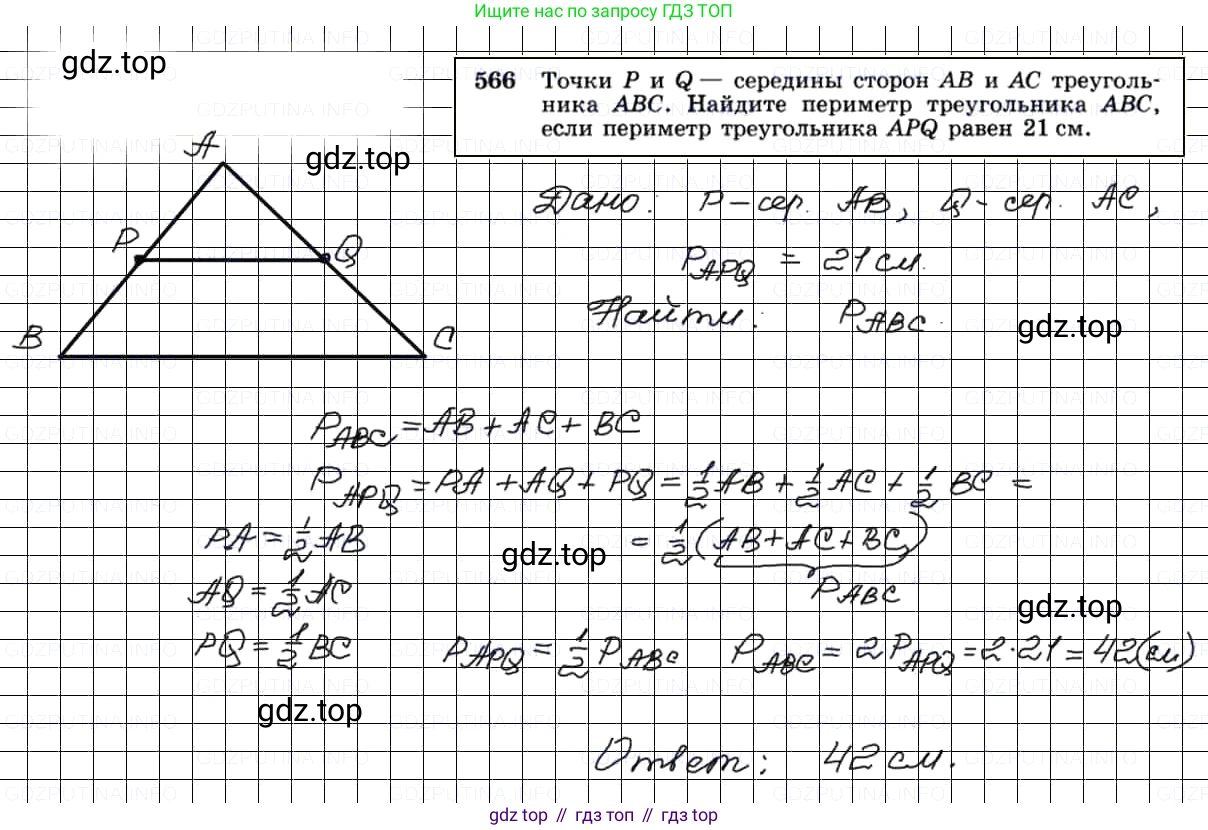 Ищите нас по запросу ГДЗ ТОП
gdz.top
566 Точки P и Q — середины сторон AB и AC треуголь-
ника ABC. Найдите периметр треугольника ABC,
если периметр треугольника APQ равен 21 см.
A
gdz.top
Дано: P - сер. AB, Q - сер. AC,
P
Q
P_APQ = 21 см.
Найти: P_ABC.
gdz.top
B
C
P_ABC = AB + AC + BC
P_APQ = PA + AQ + PQ = 1/2 AB + 1/2 AC + 1/2 BC =
PA = 1/2 AB
gdz.top
= 1/2 (AB + AC + BC)
P_ABC
AQ = 1/2 AC
gdz.top
PQ = 1/2 BC
P_APQ = 1/2 P_ABC
P_ABC = 2 P_APQ = 2·21 = 42 (см)
gdz.top
Ответ: 42 см.
gdz.top // гдз топ // гдз top